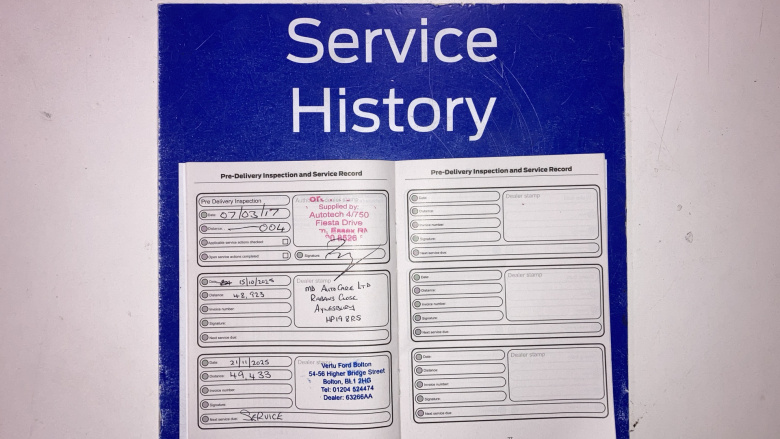 Service
History
Pre-Delivery Inspection and Service Record
Pre Delivery Inspection
Date 07/03/17
Distance 004
Applicable service actions checked
Open service actions completed
Supplied by:
Autotech 4/750
Fiesta Drive
Signature:
Date: 15/10/2025
Distance: 48,923
Invoice number:
Signature:
Next service due:
Dealer stamp
MB AutoCare Ltd
Rabans Close
Aylesbury
HP19 8RS
Date: 21/11/2025
Distance: 49,433
Invoice number:
Signature:
Next service due: SERVICE
Vertu Ford Bolton
54-56 Higher Bridge Street
Bolton, BL1 2HG
Tel: 01204 524474
Dealer: 63266AA
Pre-Delivery Inspection and Service Record
Date:
Distance:
Invoice number:
Signature:
Next service due:
Dealer stamp
Date:
Distance:
Invoice number:
Signature:
Next service due:
Dealer stamp
Date:
Distance:
Invoice number:
Signature:
Next service due:
Dealer stamp